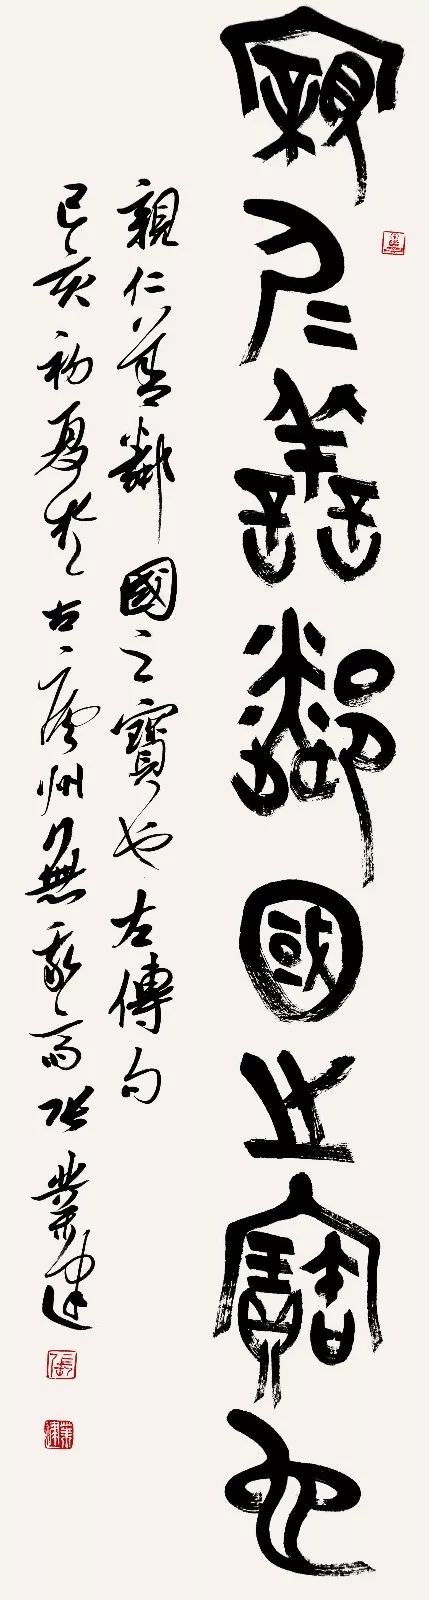 親仁善鄰國之寶也
親仁善鄰國之寶也左傳句
己亥初夏於古廣州無我齋張業建